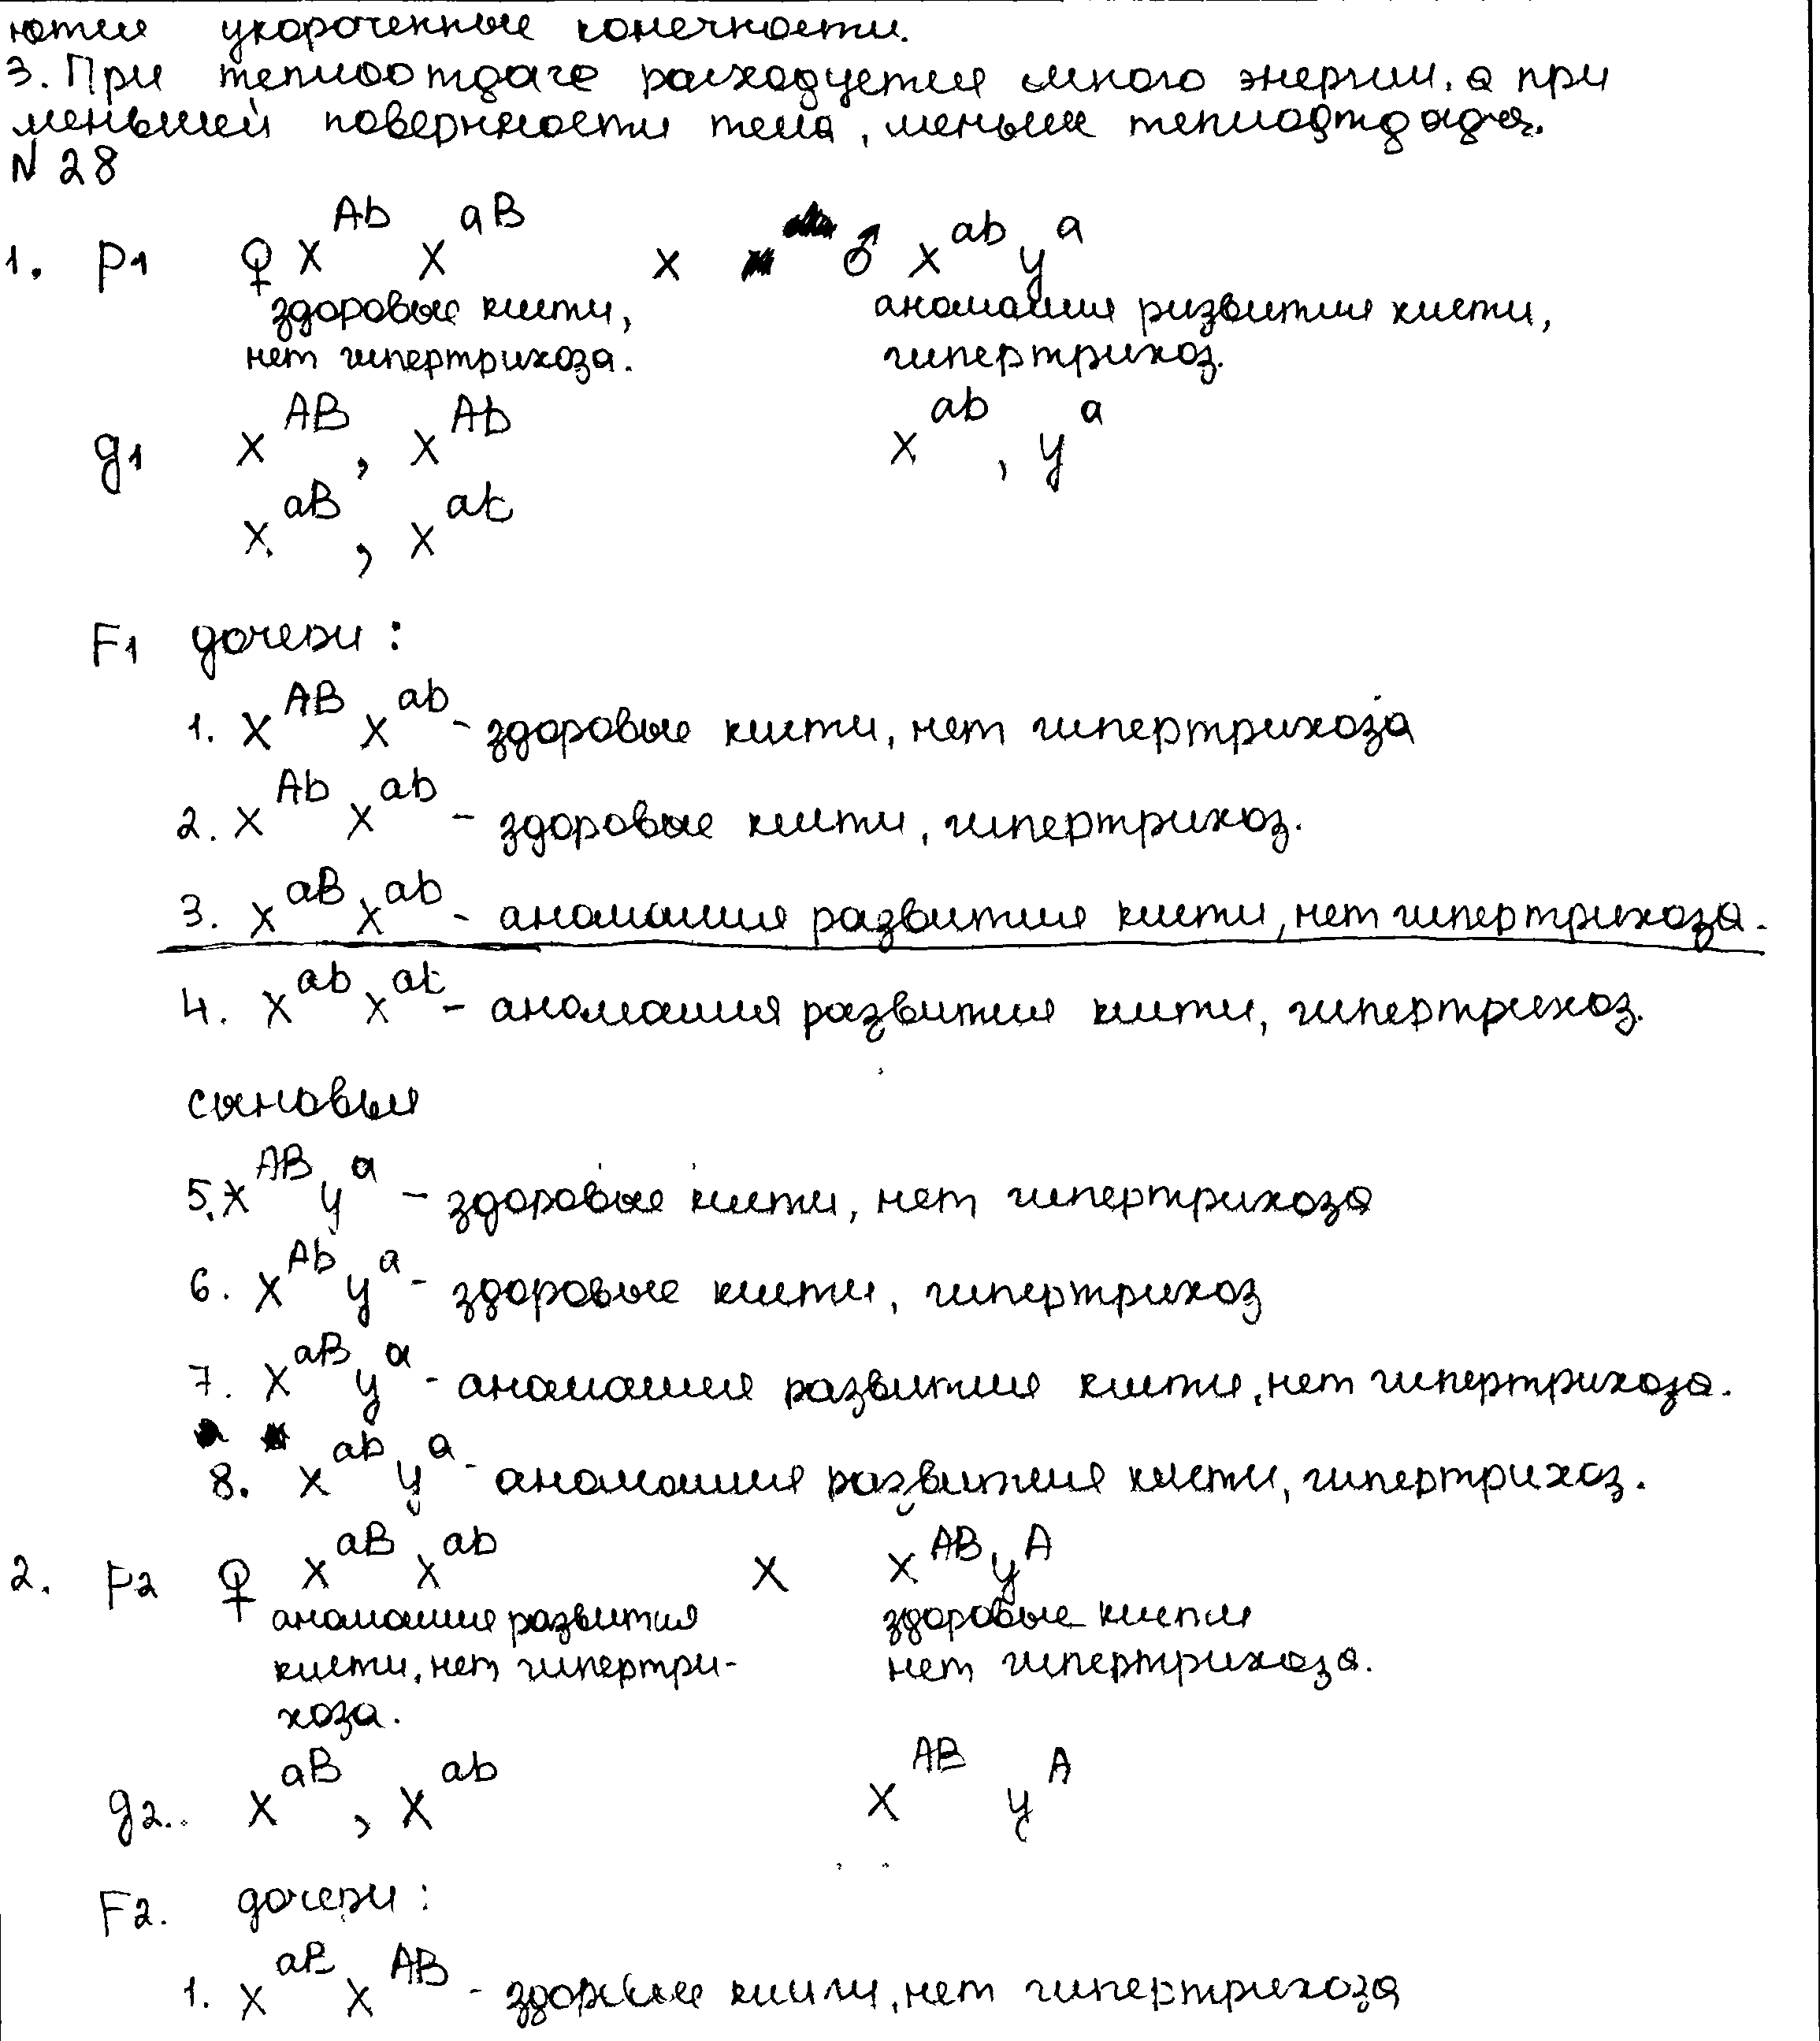 ются укороченные конечности.
3. При теплоотдаче расходуется много энергии, а при
меньшей поверхности тела, меньше теплоотдача.
N 28
1. P1 ♀ X^Ab X^aB x ♂ X^ab y^a
здоровые кисти, аномалия ризвития кисти,
нет гипертрихоза. гипертрихоз.
g1 X^AB, X^Ab X^ab, y^a
X^aB, X^ab
F1 дочери:
1. X^AB X^ab - здоровые кисти, нет гипертрихоза
2. X^Ab X^ab - здоровые кисти, гипертрихоз.
3. X^aB X^ab - аномалия развития кисти, нет гипертрихоза.
4. X^ab X^ab - аномалия развития кисти, гипертрихоз.
сыновья
5. X^AB y^a - здоровые кисти, нет гипертрихоза
6. X^Ab y^a - здоровые кисти, гипертрихоз
7. X^aB y^a - аномалия развития кисти, нет гипертрихоза.
8. X^ab y^a - аномалия развития кисти, гипертрихоз.
2. P2 ♀ X^aB X^ab x X^AB y^A
аномалия развития здоровые кисти
кисти, нет гипертри- нет гипертрихоза.
хоза.
g2. X^aB, X^ab X^AB y^A
F2. дочери:
1. X^aB X^AB - здоровые кисти, нет гипертрихоза